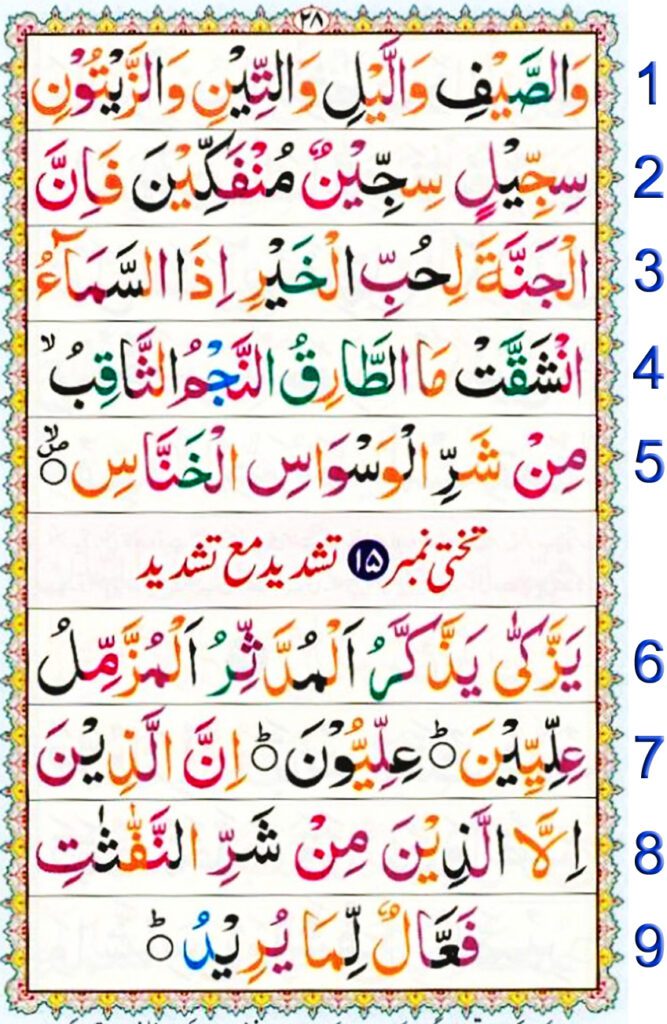 ٢٨
وَالصَّيْفِ وَالَّيْلِ وَالتِّيْنِ وَالزَّيْتُوْنِ 1
سِجِّيْلٍ سِجِّيْنٌ مُنْفَكِّيْنَ فَاِنَّ 2
الْجَنَّةَ لِحُبِّ الْخَيْرِ اِذَا السَّمَآءُ 3
انْشَقَّتْ مَا الطَّارِقُ النَّجْمُ الثَّاقِبُ ۙ 4
مِنْ شَرِّ الْوَسْوَاسِ الْخَنَّاسِ 5
تختی نمبر ۱۵ تشدید مع تشدید
يَزَّكّٰى يَذَّكَّرُ اَلْمُدَّثِّرُ اَلْمُزَّمِّلُ 6
عِلِّيِّيْنَ ؕ عِلِّيُّوْنَ ؕ اِنَّ الَّذِيْنَ 7
اِلَّا الَّذِيْنَ مِنْ شَرِّ النَّفّٰثٰتِ 8
فَعَّالٌ لِّمَا يُرِيْدُ ؕ 9